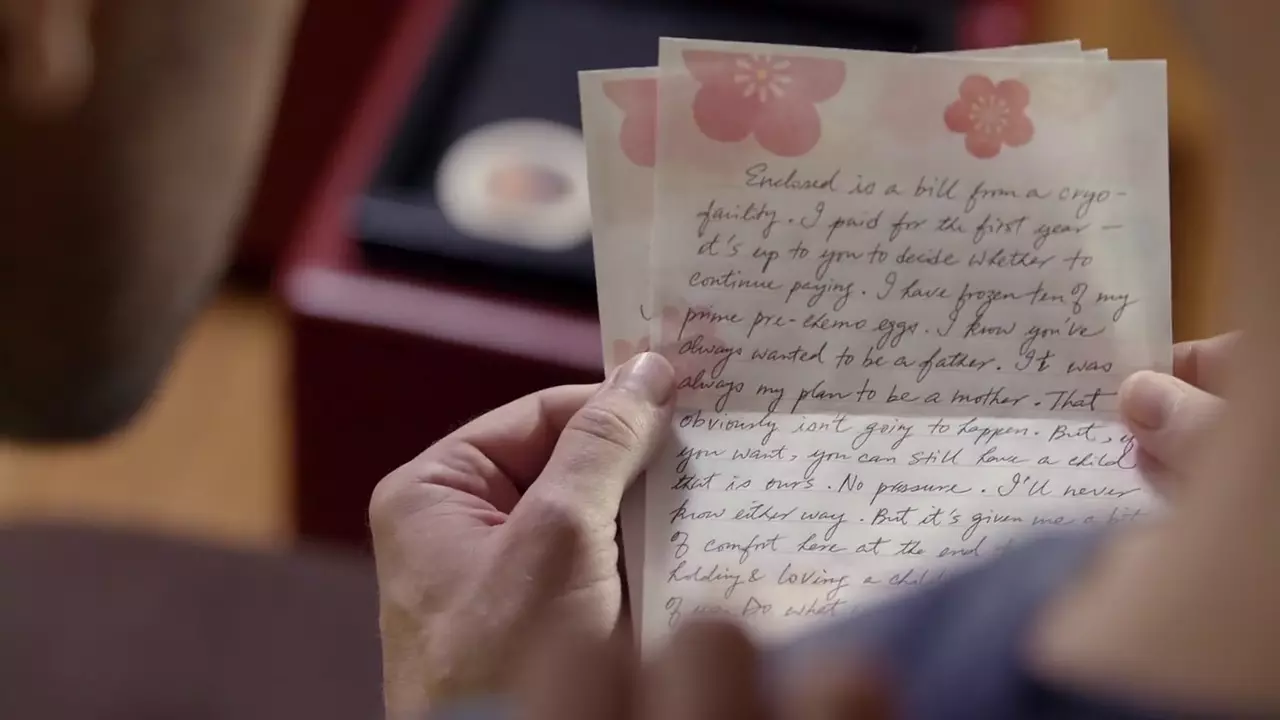 Enclosed is a bill from a cryo-
facility. I paid for the first year —
it's up to you to decide whether to
continue paying. I have frozen ten of my
prime pre-chemo eggs. I know you've
always wanted to be a father. It was
always my plan to be a mother. That
obviously isn't going to happen. But, if
you want, you can still have a child
that is ours. No pressure. I'll never
know either way. But it's given me a bit
of comfort here at the end
holding & loving a child
of Do what